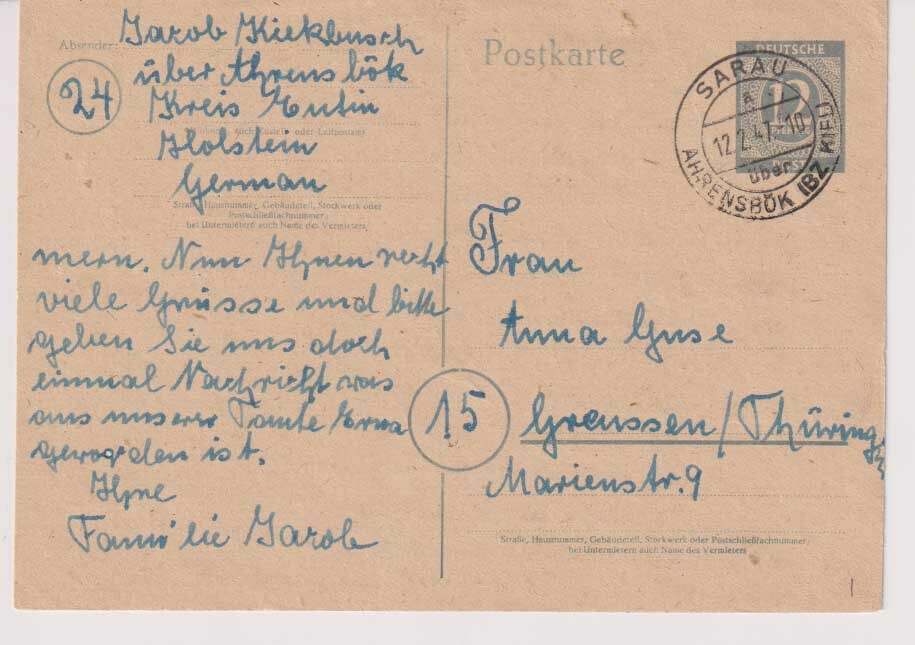 Absender:
Jarob Kiekbusch
über Ahrensbök
24
Kreis Eutin
auch Zustell- oder Leitpostamt
Holstein
German
Straße, Hausnummer, Gebäudeteil, Stockwerk oder
Postschließfachnummer;
bei Untermietern auch Name des Vermieters
mern. Nun Ihnen recht
viele Grüsse und bitte
geben Sie uns doch
einmal Nachricht was
aus unserer Tante Erna
geworden ist.
Ihre
Familie Jarob
Postkarte
DEUTSCHE
12
PFENNIG
POST
SARAU
a
12.2.47.-10
über
AHRENSBÖK (BZ KIEL)
Frau
Anna Guse
15
Greussen/Thüring
Marienstr. 9
Straße, Hausnummer, Gebäudeteil, Stockwerk oder Postschließfachnummer;
bei Untermietern auch Name des Vermieters